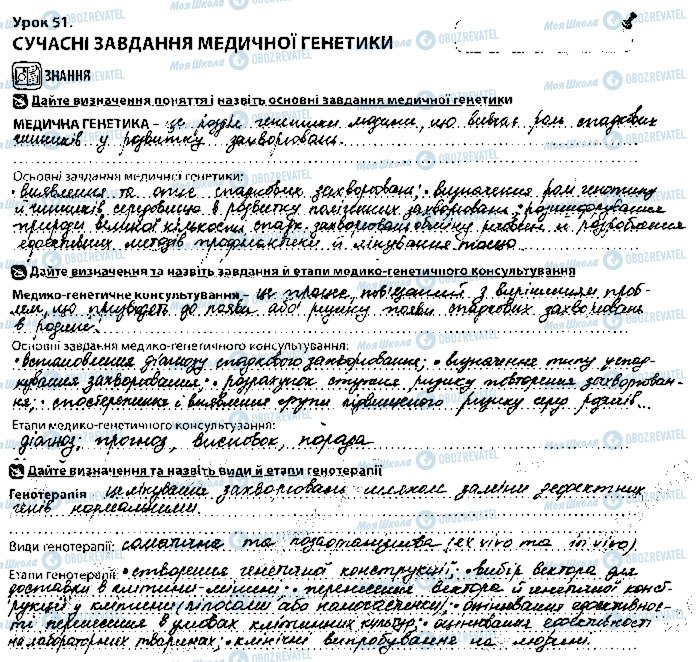 Урок 51.
СУЧАСНІ ЗАВДАННЯ МЕДИЧНОЇ ГЕНЕТИКИ
ЗНАННЯ
Дайте визначення поняття і назвіть основні завдання медичної генетики
МЕДИЧНА ГЕНЕТИКА – це розділ генетики людини, що вивчає роль спадкових
чинників у розвитку захворювань.
Основні завдання медичної генетики:
• виявлення та опис спадкових захворювань; • визначення ролі генотипу
й чинників середовища в розвитку полігенних захворювань; • розшифрування
природи великої кількості спадк. захворювань обміну речовин й розроблення
ефективних методів профілактики й лікування тощо
Дайте визначення та назвіть завдання й етапи медико-генетичного консультування
Медико-генетичне консультування – це процес, пов'язаний з вирішенням проб-
лем, що призводять до появи або ризику появи спадкових захворювань
в родині.
Основні завдання медико-генетичного консультування:
• встановлення діагнозу спадкового захворювання; • визначення типу успад-
кування захворювання; • розрахунок ступеня ризику повторення захворюван-
ня; • спостереження і виявлення групи підвищеного ризику серед родичів
Етапи медико-генетичного консультування:
діагноз, прогноз, висновок, порада
Дайте визначення та назвіть види й етапи генотерапії
Генотерапія це лікування захворювань шляхом заміни дефектних
генів нормальними.
Види генотерапії: соматична та (ex vivo та in vivo)
Етапи генотерапії: • створення генетичної конструкції; • вибір вектора для
доставки в клітини-мішені; • перенесення вектора й генетичної конст-
рукції у клітини (ліпосоми або наночастинки); • оцінювання ефективнос-
ті перенесення в умовах клітинних культур; • оцінювання ефективності
на лабораторних тваринах; • клінічні випробування на людині.